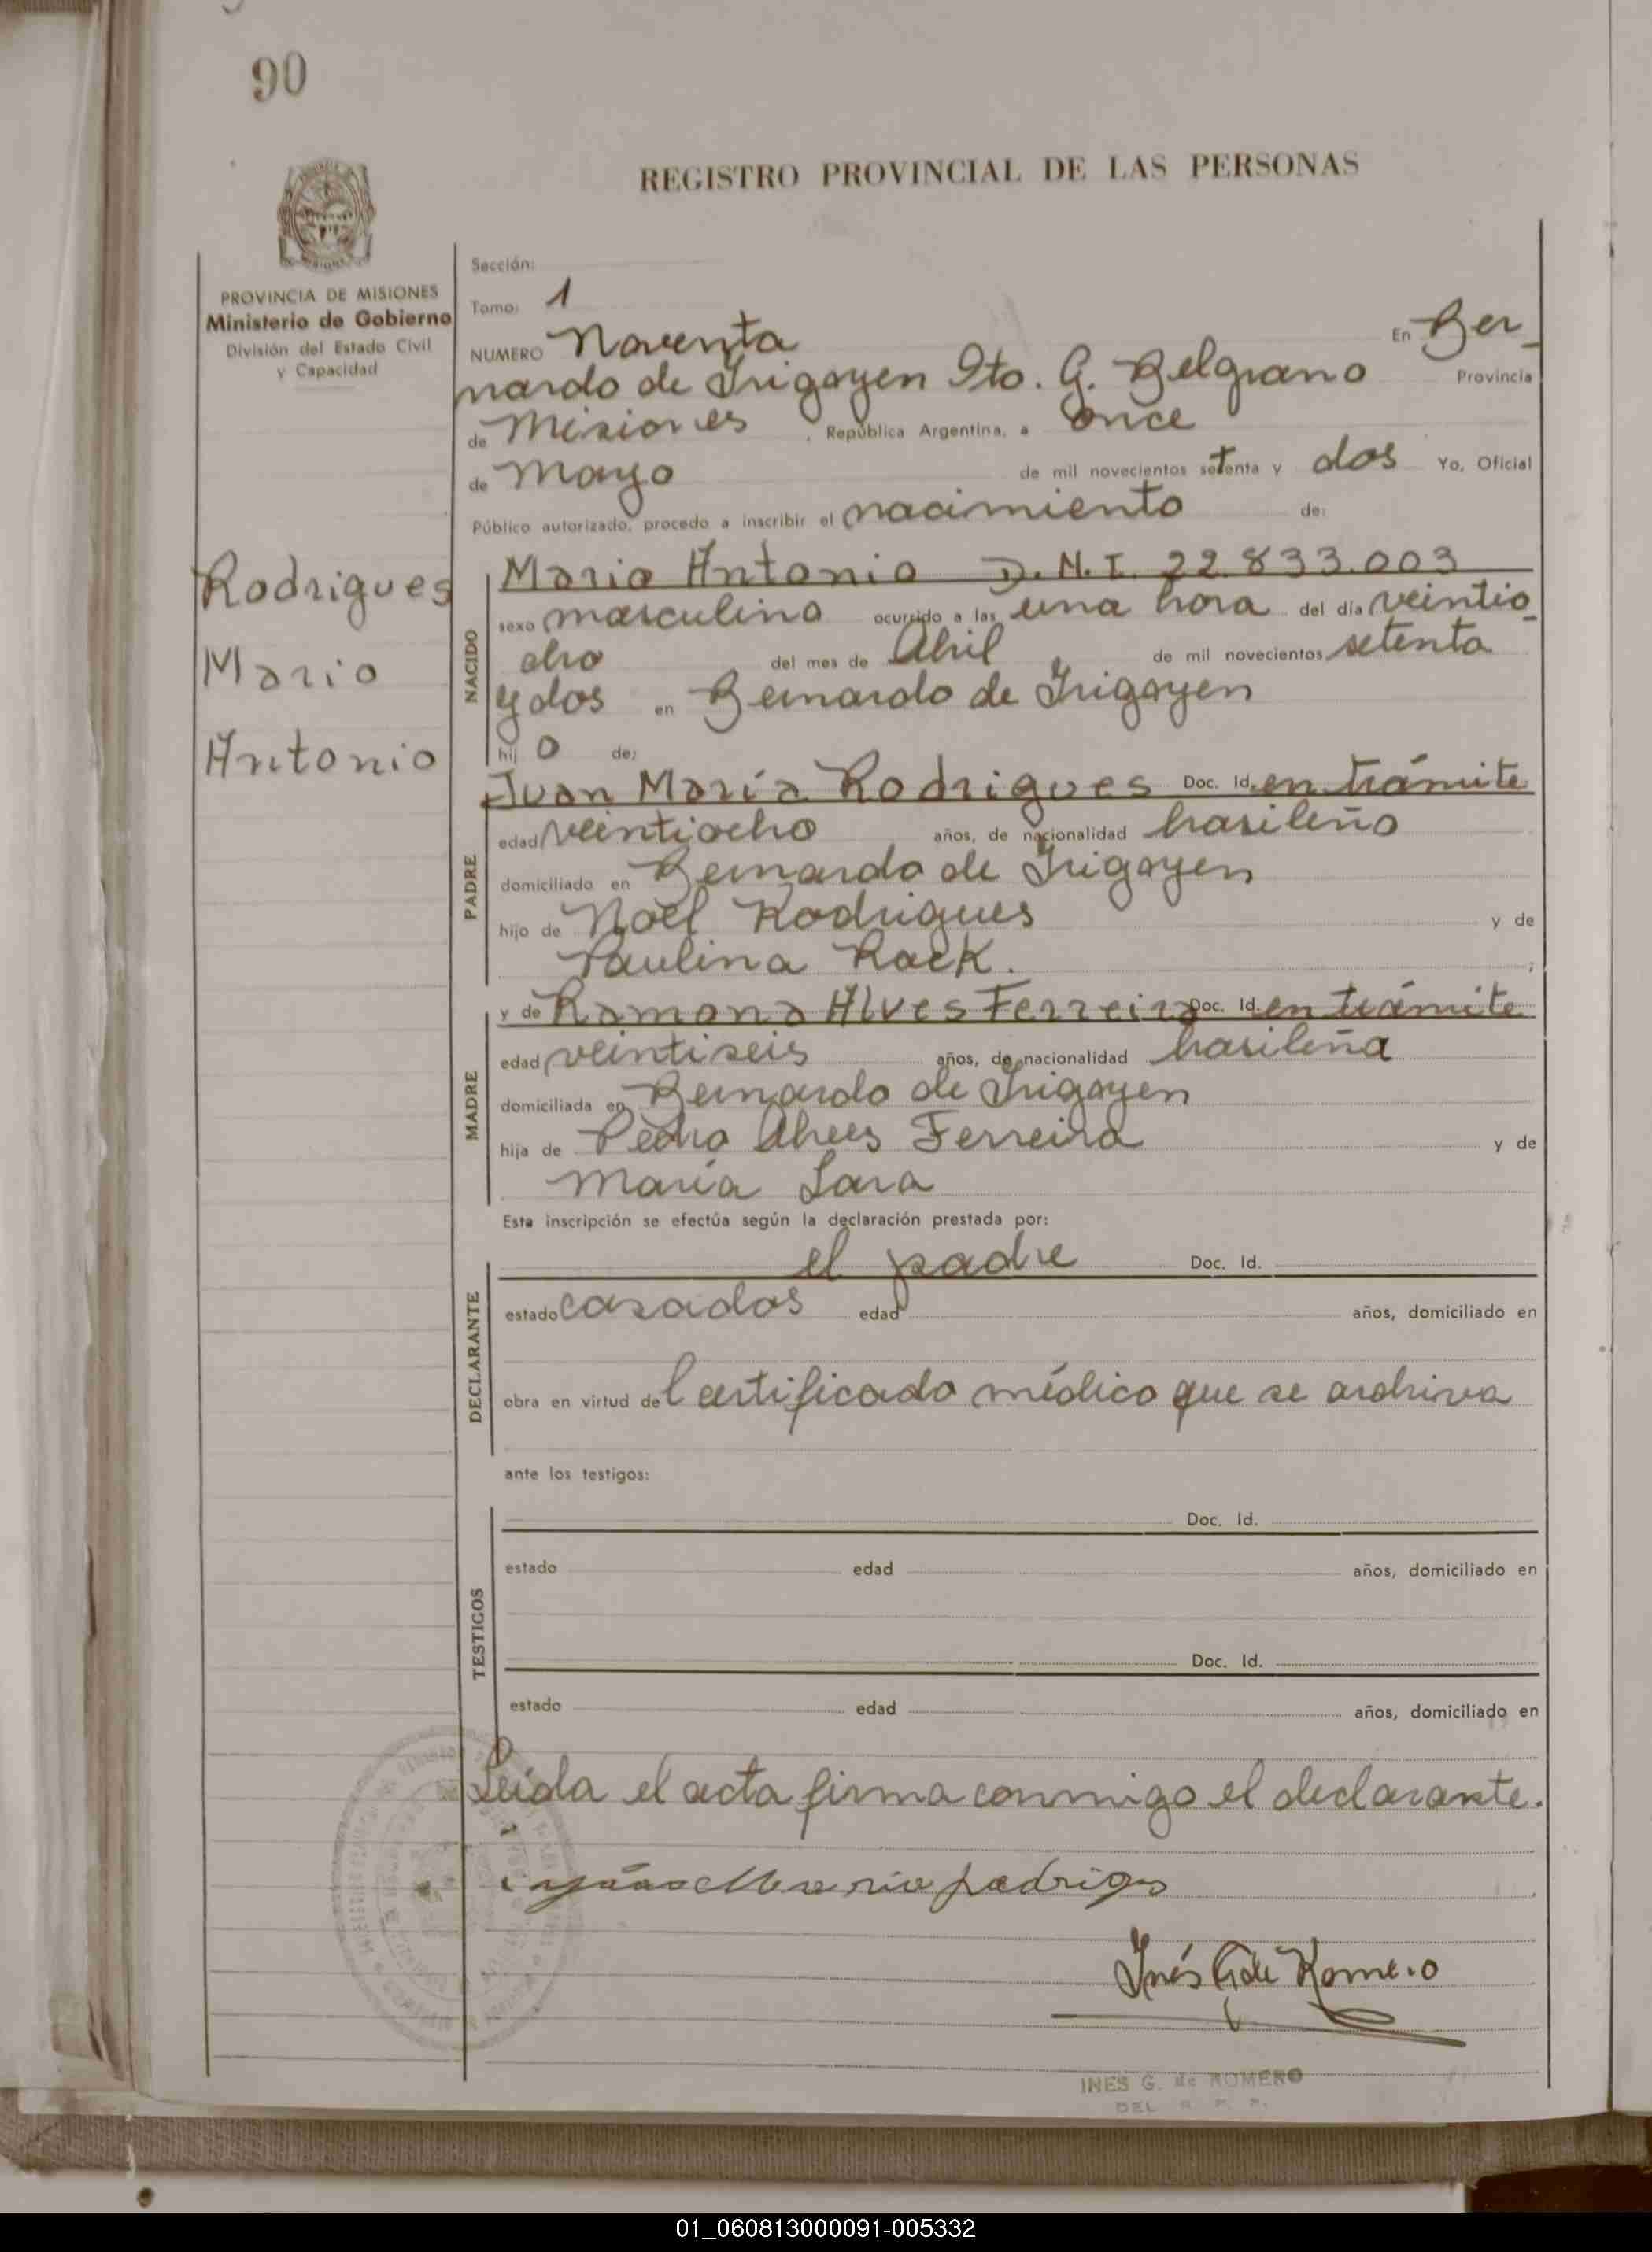 90
REGISTRO PROVINCIAL DE LAS PERSONAS
PROVINCIA DE MISIONES
Ministerio de Gobierno
División del Estado Civil
y Capacidad
Rodrigues
Mario
Antonio
Sección:
Tomo: 1
NUMERO Noventa En Ber_
nardo de Irigoyen Dto. G. Belgrano Provincia
de Misiones , República Argentina, a once
de Mayo de mil novecientos setenta y dos Yo, Oficial
Público autorizado, procedo a inscribir el nacimiento de:
NACIDO
Mario Antonio D.N.I. 22.833.003
sexo masculino ocurrido a las una hora del día veintio_
cho del mes de Abril de mil novecientos setenta
y dos en Bernardo de Irigoyen
hij o de:
PADRE
Juan María Rodrigues Doc. Id. en trámite
edad veintiocho años, de nacionalidad brasileño
domiciliado en Bernardo de Irigoyen
hijo de Noel Rodrigues y de
Paulina Rack. ;
MADRE
y de Ramona Alves Ferreira Doc. Id. en trámite
edad veintiseis años, de nacionalidad brasileña
domiciliada en Bernardo de Irigoyen
hija de Pedro Alves Ferreira y de
María Lara
Esta inscripción se efectúa según la declaración prestada por:
DECLARANTE
el padre Doc. Id.
estado casados edad años, domiciliado en
obra en virtud de Certificado médico que se archiva
ante los testigos:
TESTIGOS
Doc. Id.
estado edad años, domiciliado en
Doc. Id.
estado edad años, domiciliado en
Leída el acta firma conmigo el declarante.
Inés G de Romero
INES G. de ROMERO
DEL R. P. P.
01_060813000091-005332